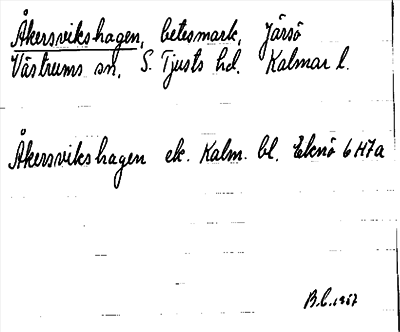 Åkersvikshagen, betesmark, Järsö
Västrums sn. S. Tjusts hd. Kalmar l.
Åkersvikshagen ek. Kalm. bl. Eknö 6 H7a
B.C. 1957